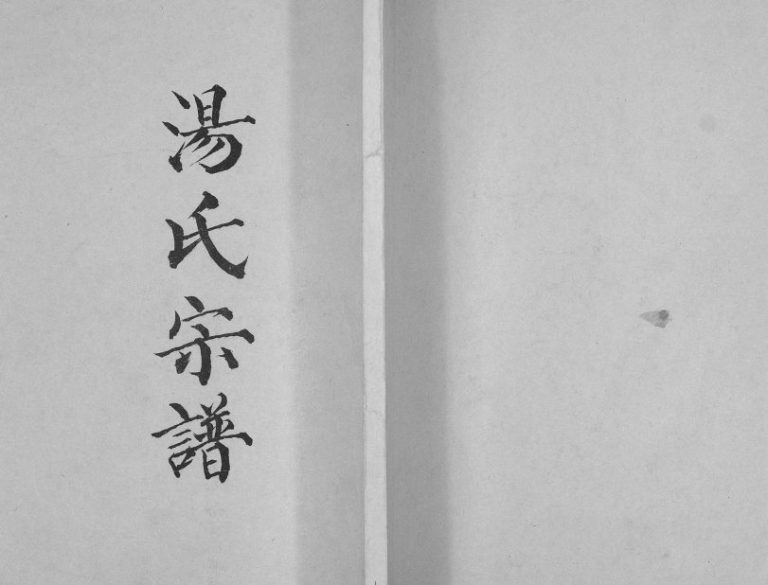 湯氏宗譜